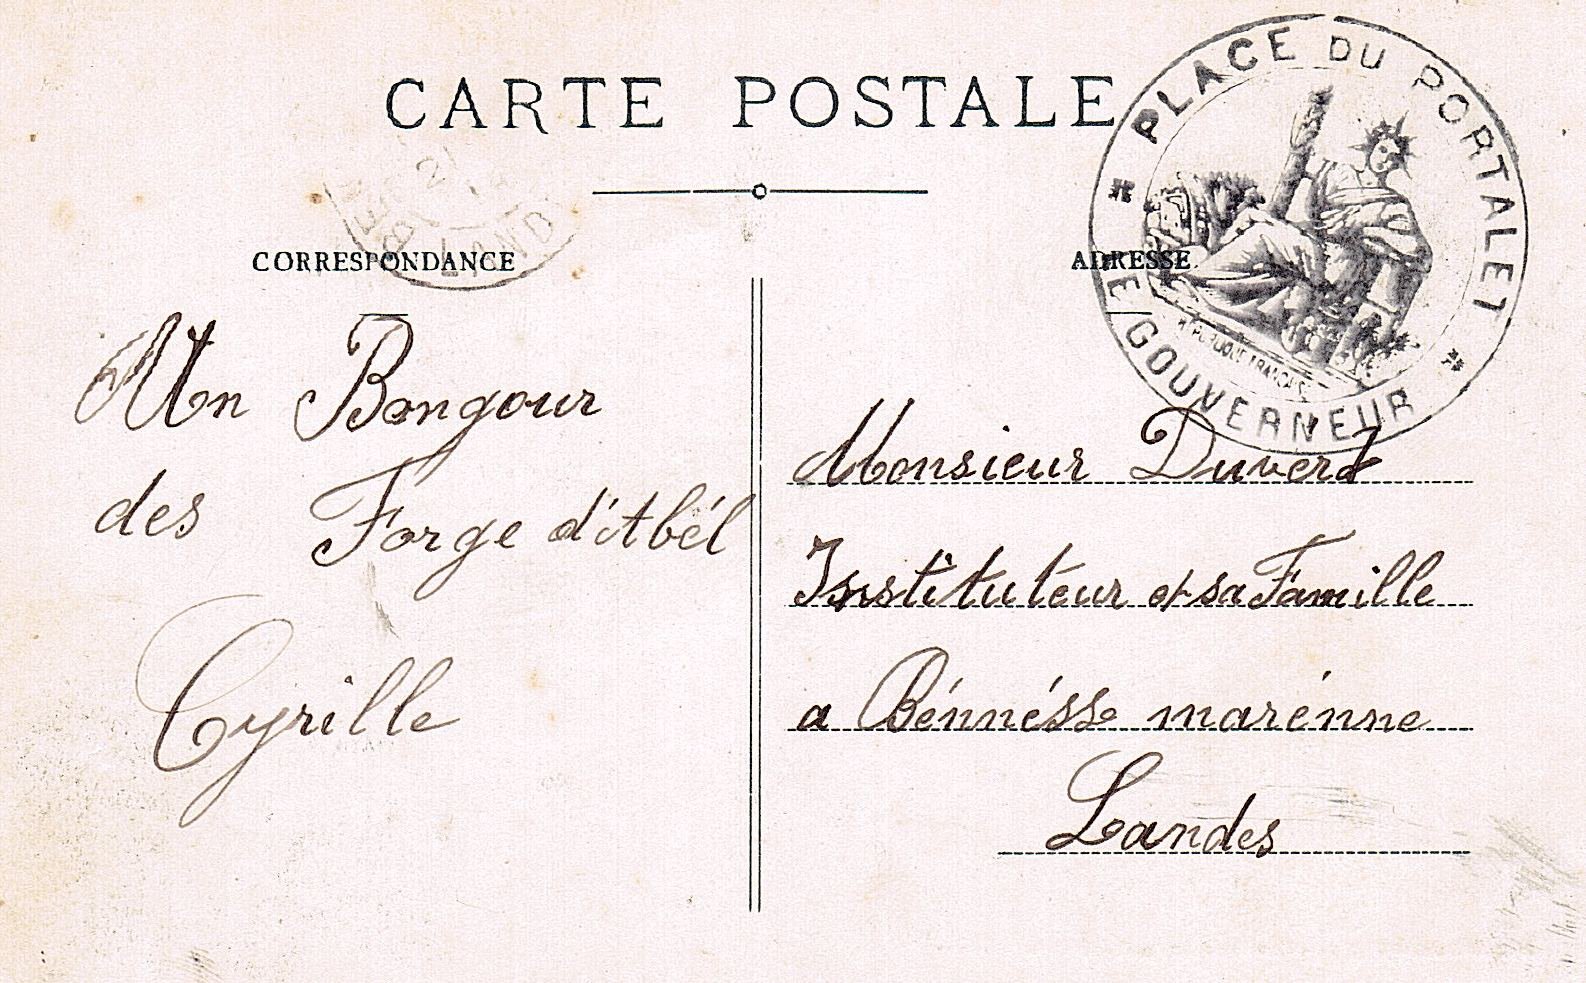 CARTE POSTALE
PLACE DU PORTALET
LE GOUVERNEUR
REPUBLIQUE FRANÇAISE
CORRESPONDANCE
ADRESSE
Un Bongour
des Forge d'Abél
Cyrille
Monsieur Duvert
Instituteur et sa Famille
a Bénnésse marénne
Landes